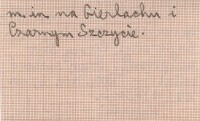 m. in. na Gierlachu i
Czarnym Szczycie.